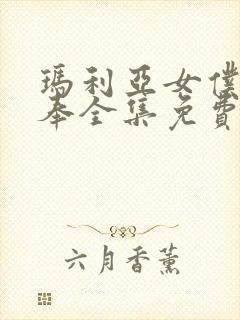 瑪利亞女僕
奉全集免費
六月香薰